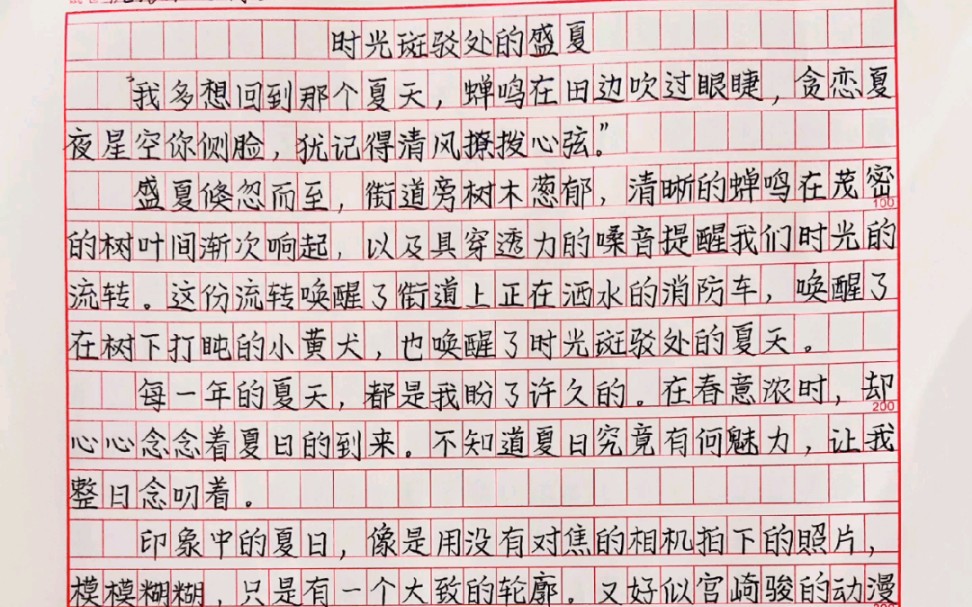 时光斑驳处的盛夏
“我多想回到那个夏天，蝉鸣在田边吹过眼睫，贪恋夏
夜星空你侧脸，犹记得清风撩拨心弦。”
盛夏倏忽而至，街道旁树木葱郁，清晰的蝉鸣在茂密
100
的树叶间渐次响起，以及具穿透力的嗓音提醒我们时光的
流转。这份流转唤醒了街道上正在洒水的消防车，唤醒了
在树下打盹的小黄犬，也唤醒了时光斑驳处的夏天。
每一年的夏天，都是我盼了许久的。在春意浓时，却
200
心心念念着夏日的到来。不知道夏日究竟有何魅力，让我
整日念叨着。
印象中的夏日，像是用没有对焦的相机拍下的照片，
模模糊糊，只是有一个大致的轮廓。又好似宫崎骏的动漫